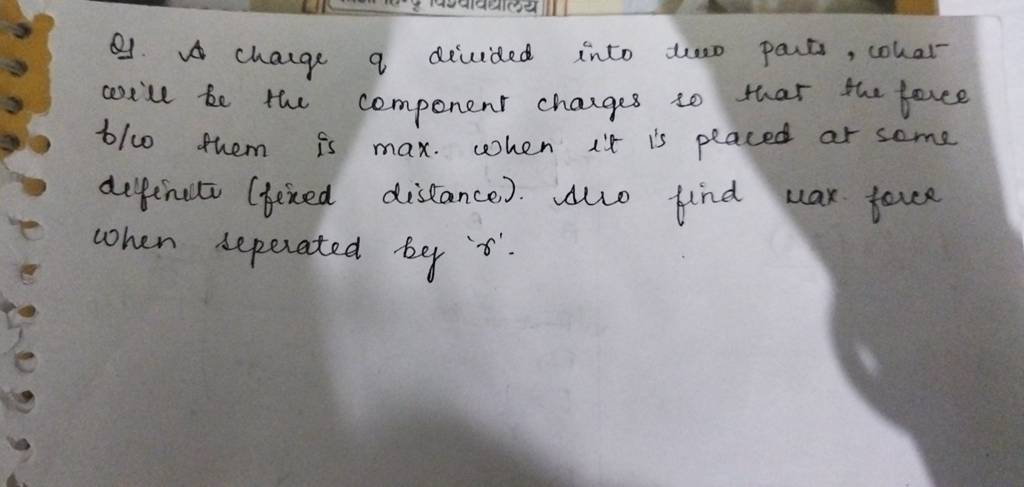 विश्वविद्यालय
Q1. A charge q divided into two parts, what
will be the component charges so that the force
b/w them is max. when it is placed at some
definite (fixed distance). Also find max. force
when seperated by 'r'.